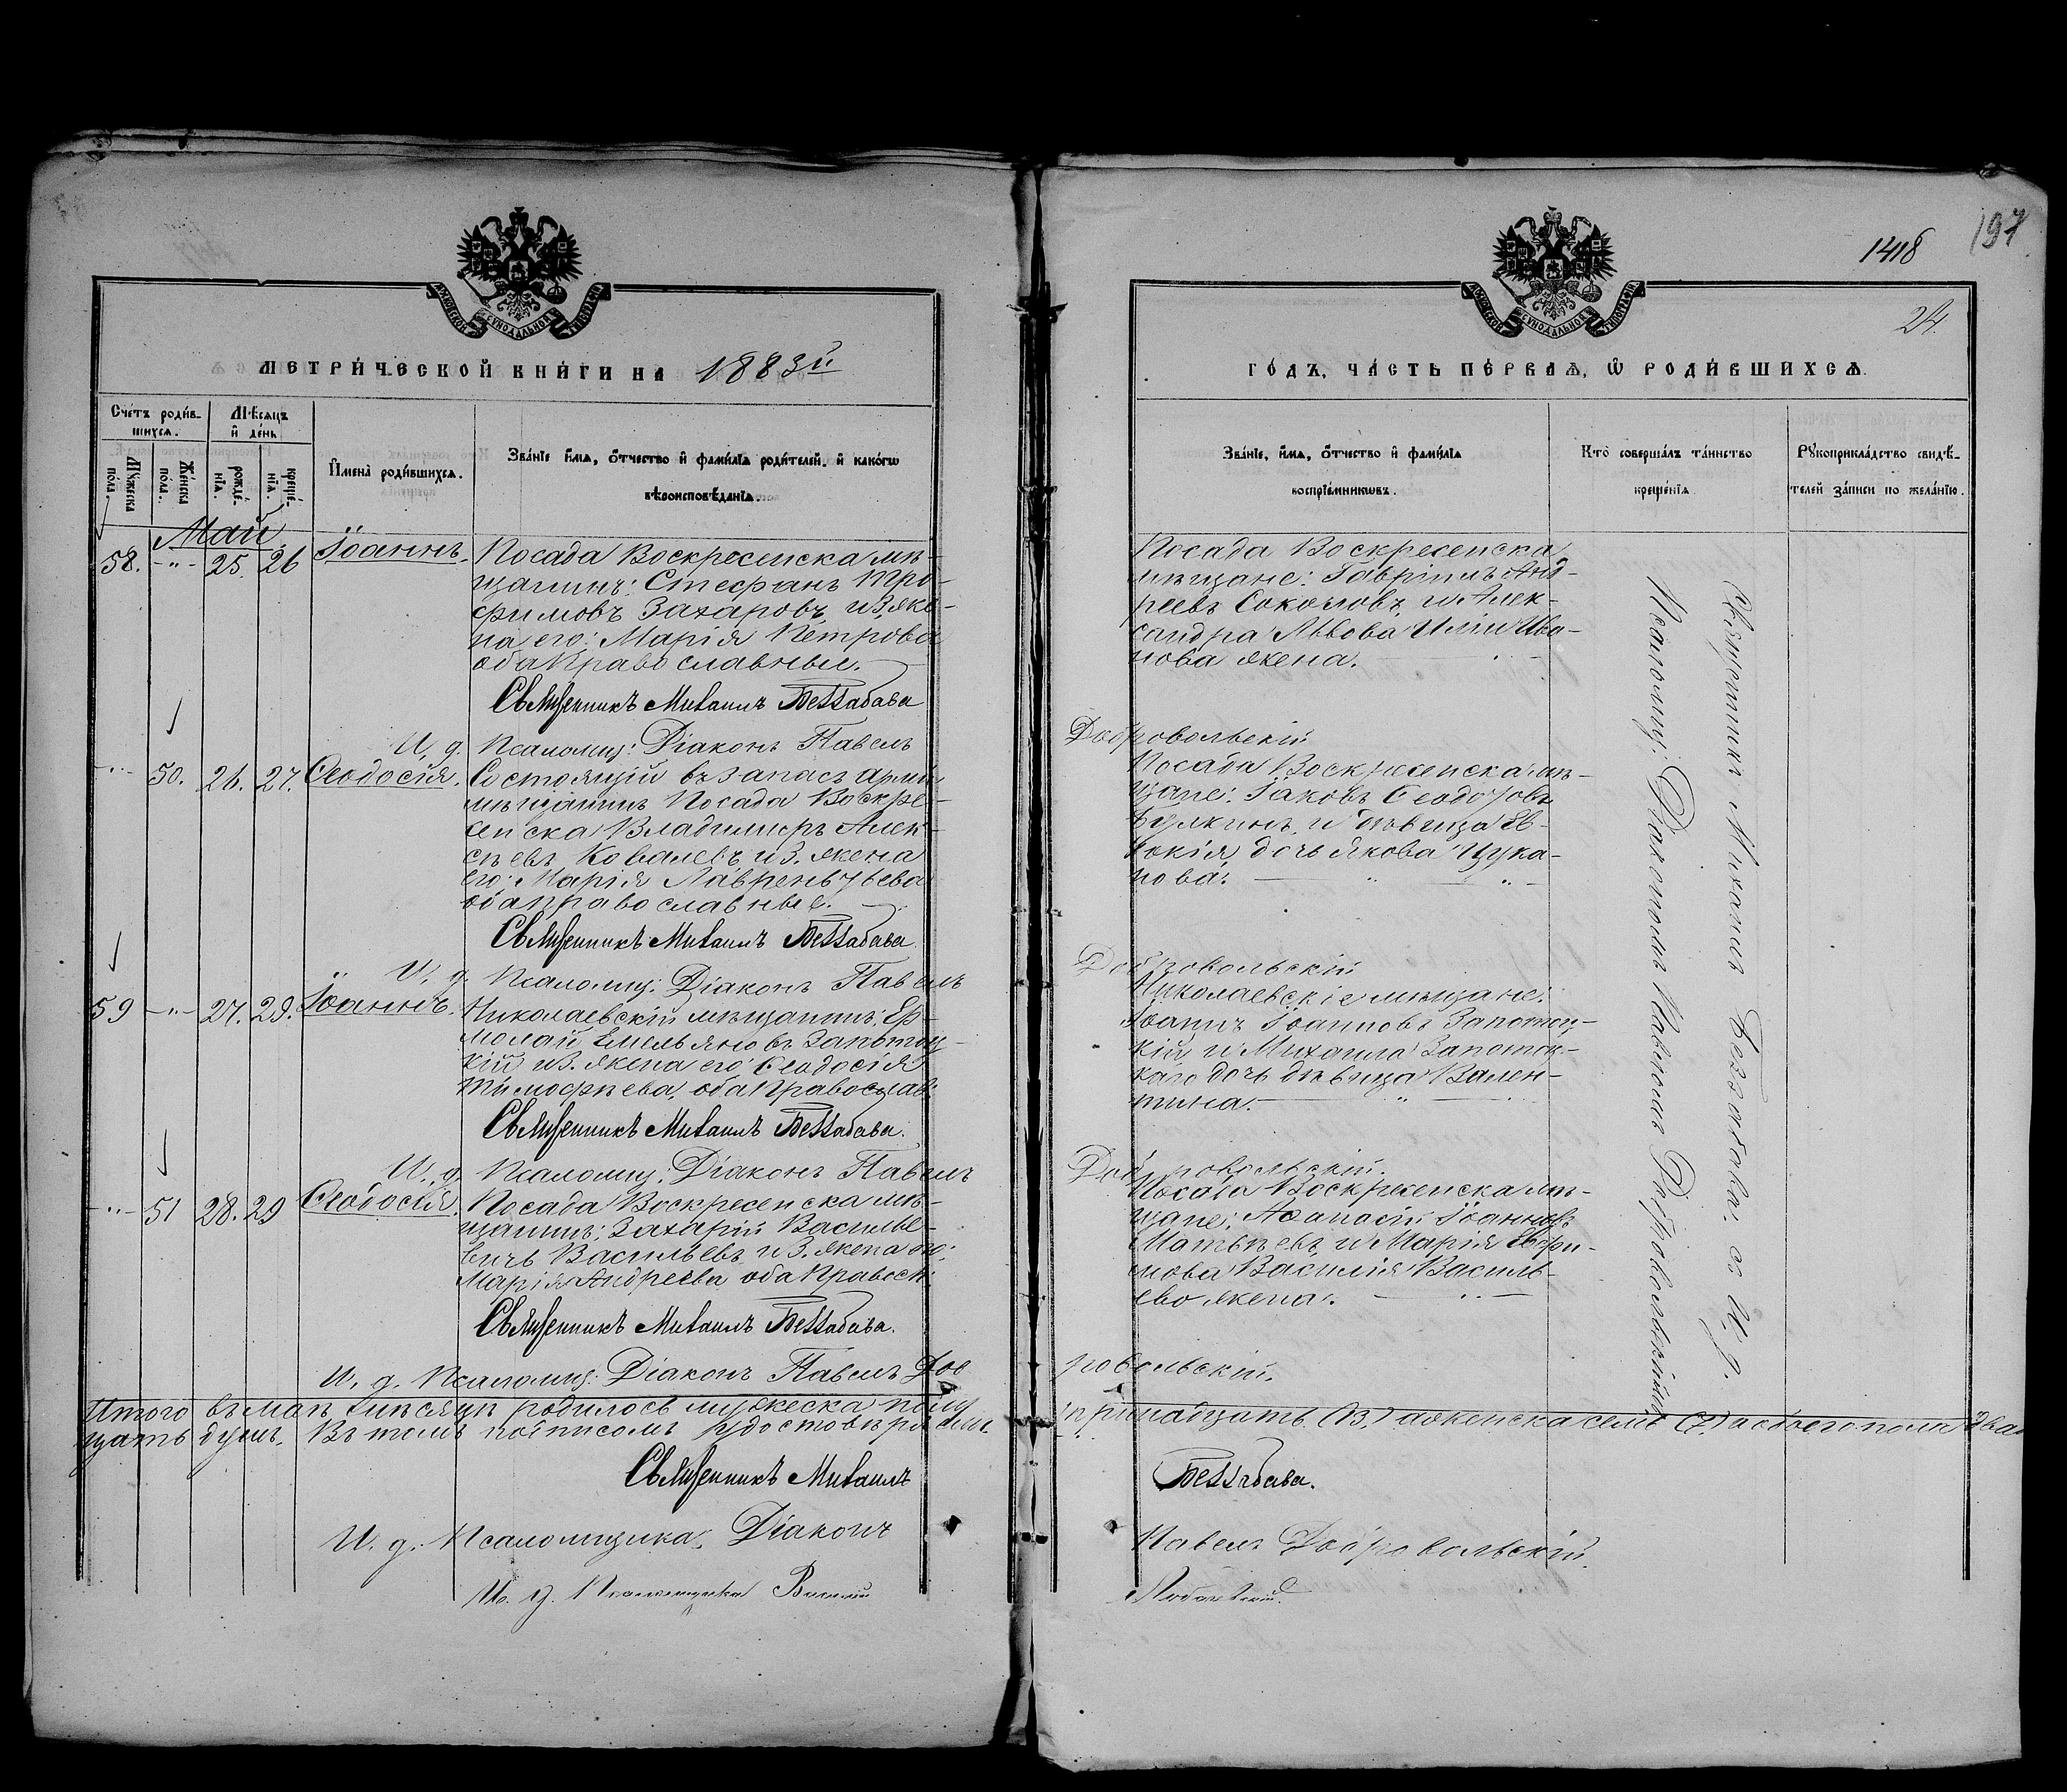 МЕТРИЧЕСКОЙ КНИГИ НА 1883й
Счетъ родив-
шихся.
Мужеска пола.
Женска пола.
Мѣсяцъ
и день
рожде-
нія.
креще-
нія.
Имена родившихся.
Званіе, имя, отчество и фамилія родителей, и какого
вѣроисповѣданія.
Май
58. -"- 25. 26 Іоаннъ. Посада Воскресенска мѣ-
щанинъ: Стефанъ Тро-
фимовъ Захаровъ, и З. же-
на его: Марія Петрова
оба Православные.
Священникъ Михаилъ Беззабава
И. д. Псаломщ: Діаконъ Павелъ
-"- 50. 26. 27. Ѳеодосія. Состоящій въ запасѣ арміи
мѣщанинъ Посада Воскре-
сенска Владимиръ Алек-
сѣевъ Ковалевъ и З. жена
его: Марія Лаврентьева
оба православные.
Священникъ Михаилъ Беззабава.
И. д. Псаломщ: Діаконъ Павелъ
59 -"- 27. 29. Іоаннъ. Николаевскій мѣщанинъ: Ер-
молай Емельяновъ Запотоц-
кій и З. жена его Ѳеодосія
Тимофѣева, оба Православ:
Священникъ Михаилъ Беззабава.
И. д. Псаломщ: Діаконъ Павелъ
-"- 51 28. 29 Ѳеодосія. Посада Воскресенска мѣ-
щанинъ: Захарій Василье-
вичъ Васильевъ и З. жена его:
Марія Андреева оба Правосл:
Священникъ Михаилъ Беззабава.
И. д. Псаломщ: Діаконъ Павелъ Доб
Итого въ маѣ мѣсяцѣ родилось мужеска полу
цать душъ. Въ томъ подписомъ удостовѣряемъ.
Священникъ Михаилъ
И. д. Псаломщика: Діаконъ
И. д. Псаломщика
197
1418
24.
ГОДЪ, ЧАСТЬ ПЕРВАЯ, Ѡ РОДИВШИХСЯ.
Званіе, имя, отчество и фамилія
воспріемниковъ.
Кто совершалъ таинство
крещенія
Рукоприкладство свидѣ-
телей записи по желанію.
Посада Воскресенска
мѣщане: Гавріилъ Анд-
реевъ Соколовъ, и Алек-
сандра Львова Ильи Ива-
нова жена.
Добровольскій
Посада Воскресенска мѣ-
щане: Іаковъ Ѳеодотовъ
и дѣвица Ев-
докія, дочь Якова Цука-
нова.
Добровольскій
Николаевскіе мѣщане:
Іоаннъ Іоанновъ Запотоц-
кій и Михаила Запотоц-
каго дочь дѣвица Вален-
тина.
Добровольскій.
Посада Воскресенска мѣ-
щане: Аѳанасій Іоанновъ
Матвѣевъ, и Марія Евфи-
мова Василія Василь-
ева жена.
ровольскій.
Священникъ Михаилъ Беззабава: съ И. д.
Псаломщ: Діакономъ Павломъ Добровольскимъ.
тринадцать (13.) а женска семь (7.) а обоего пола два
Беззабава.
Павелъ Добровольскій.